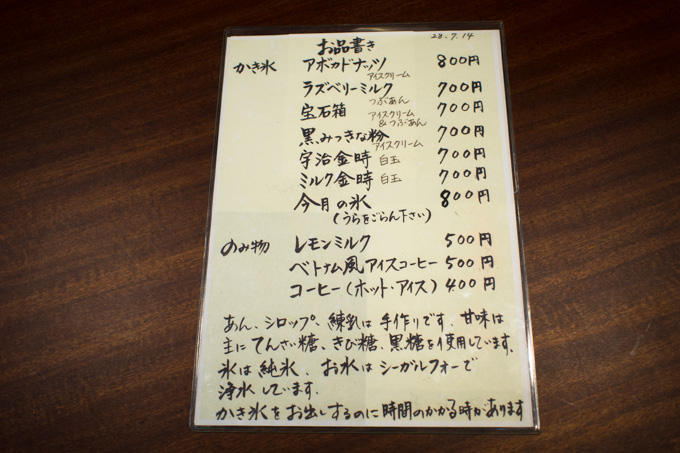 お品書き 28.7.14
かき氷 アボカドナッツ 800円
アイスクリーム
ラズベリーミルク 700円
つぶあん
宝石箱 アイスクリーム&つぶあん 700円
黒みつきな粉 700円
アイスクリーム
宇治金時 白玉 700円
ミルク金時 白玉 700円
今月の氷 800円
(うらをごらん下さい)
のみ物 レモンミルク 500円
ベトナム風アイスコーヒー 500円
コーヒー(ホット・アイス) 400円
あん、シロップ、練乳は手作りです。甘味は
主にてんさい糖、きび糖、黒糖を使用しています。
氷は純氷、お水はシーガルフォーで
浄水しています。
かき氷をお出しするのに時間のかかる時があります